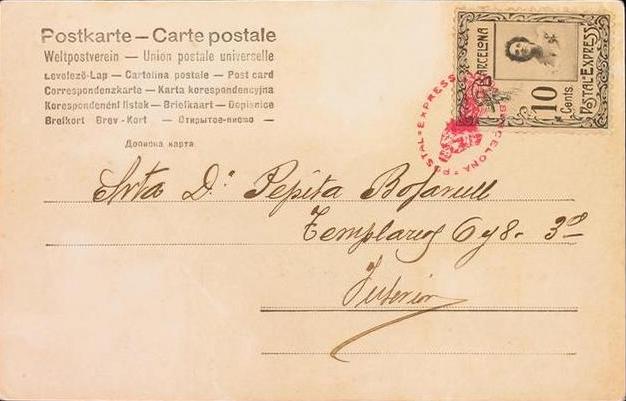 Postkarte — Carte postale
Weltpostverein — Union postale universelle
Levelező-Lap — Cartolina postale — Post card
Correspondenzkarte — Karta korespondencyjna
Korespondenční lístek — Briefkaart — Dopisnice
Brefkort Brev-Kort — Открытое-писмо —
Дописна карта
BARCELONA
POSTAL-EXPRESS
10
Cents.
POSTAL-EXPRESS
BARCELONA
Srta Dª Pepita Bofarull
Templarios 6 y 8- 3º
Interior